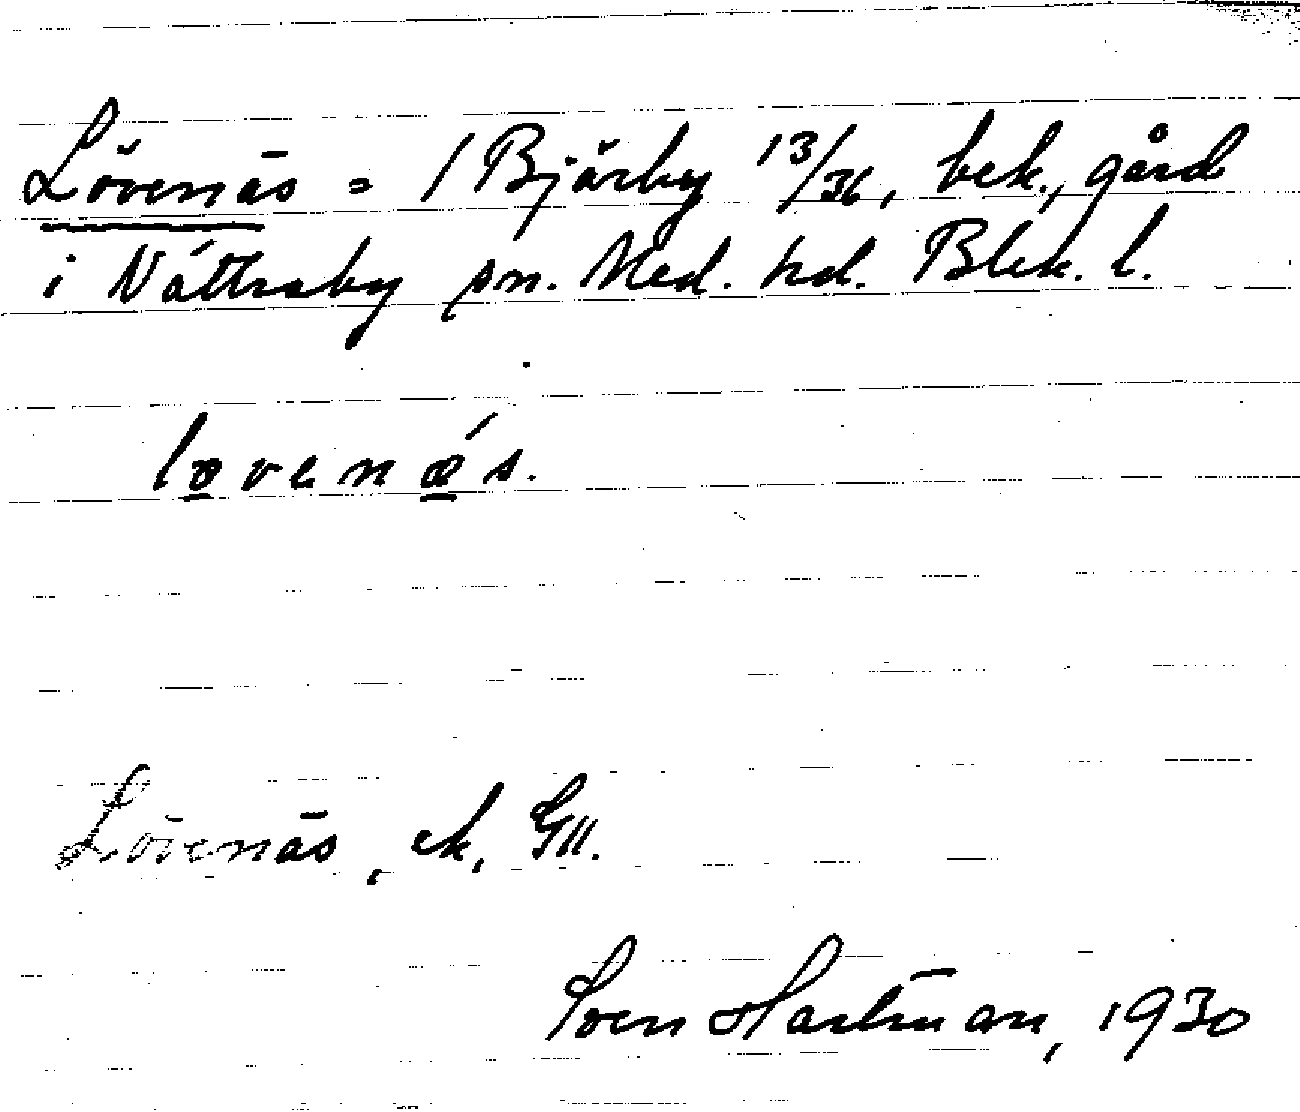 Lövenäs = 1 Bjärby 13/36, bek., gård
i Nättraby sn. Med. hd. Blek. l.
løvenǽs.
Lövenäs, ek, GII.
Sven Hartman, 1930